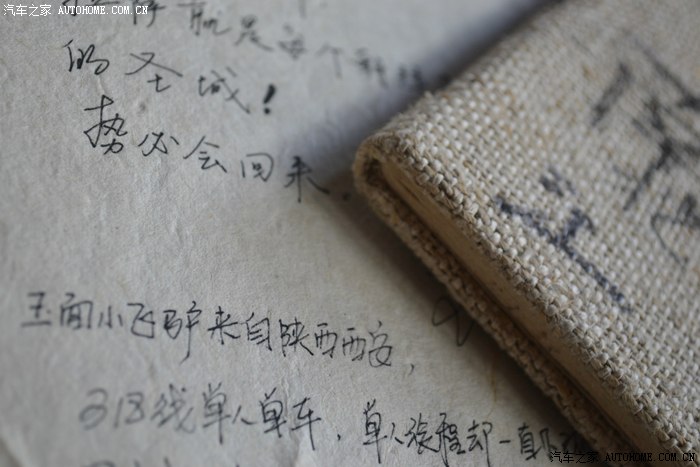 汽车之家 AUTOHOME.COM.CN
是每个
的圣城!
势必会回来.
玉面小飞驴来自陕西西安,
318线单人单车,单人旅程却一直
汽车之家 WWW.AUTOHOME.COM.CN